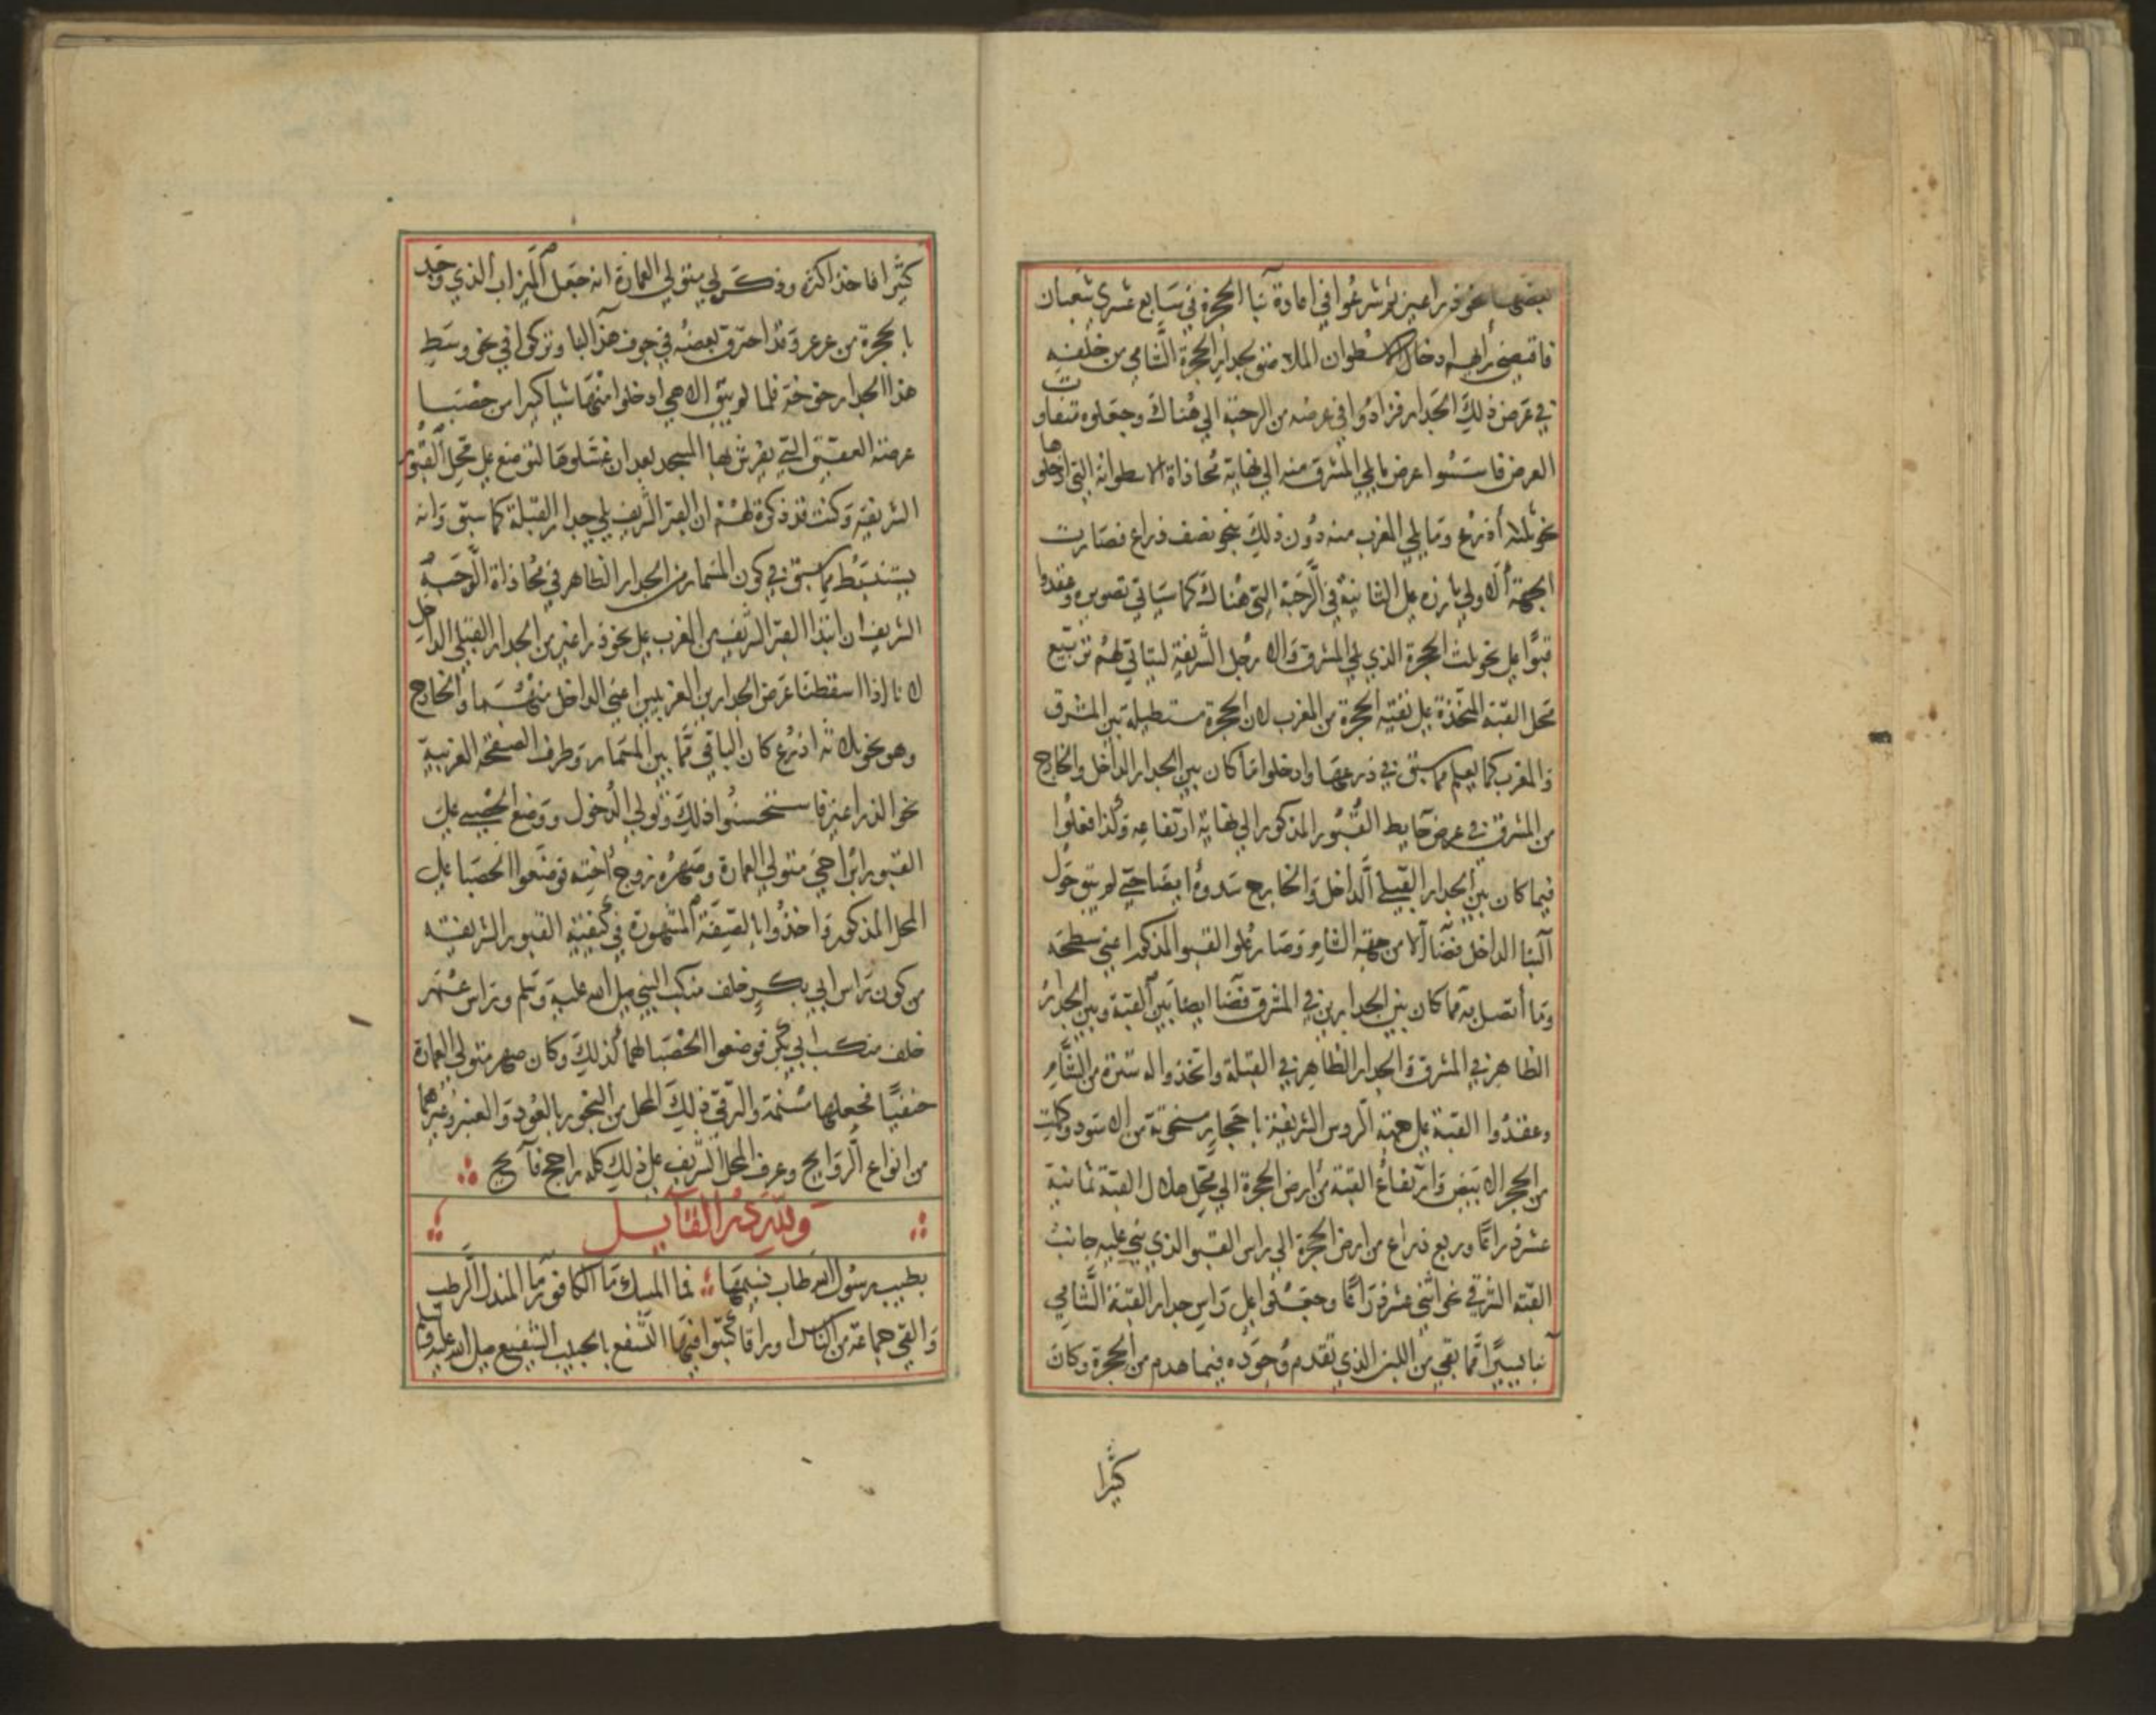 بعضها نحو ذراعين ثم شرعوا في اعادة بنا الحجرة في سابع عشري شعبان
فاقتضى رايهم ادخال الاسطوان الملاصق بجدار الحجرة الشامي من خلفه
في عرض ذلك الجدار فزادوا في عرضه من الرحبة الي هناك وجعلوه متفاوت
العرض فاسسوا عرض ما يلي المشرق منه الي نهاية محاذاة الاسطوانة التي ادخلوها
نحو ثلثة أذرع وما يلي المغرب منه دون ذلك بنحو نصف ذراع فصارت
الجهة الاولي بارزة على الثانية في الرحبة التي هناك كما سياتي تصويره وعقدوا
قبوا على نحو ثلث الحجرة الذي يلي المشرق والارجل الشريفة ليتاتي لهم تربيع
محل القبة المتخذة على بقية الحجرة من المغرب لان الحجرة مستطيلة بين المشرق
والمغرب كما يعلم مما سبق في ذرعها وادخلوا ما كان بين الجدار الداخل والخارج
من المشرق في عرض حايط القبو المذكور الي نهاية ارتفاعه وكذا فعلوا
فيما كان بين الجدار القبلي الداخل والخارج سدوه ايضا حتى لم يبق حول
البنا الداخل فضا الا من جهة الشام وصار علو القبو المذكور اعني سطحه
وما اتصل به مما كان بين الجدارين في المشرق فضا ايضا بين القبة وبين الجدار
الظاهر في المشرق والجدار الظاهر في القبلة واتخذوا له سترة من الشام
وعقدوا القبة على جهة الروس الشريفة باحجار منحوتة من الاسود وكملت
من الحجر الابيض وارتفاع القبة من ارض الحجرة الي محل هلال القبة ثمانية
عشر ذراعا وربع ذراع من ارض الحجرة الي راس القبو الذي بني عليه جانب
القبة الشرقي نحو اثني عشر ذراعا وجعلوا على راس جدار القبة الشامي
بنا يسيرا مما بقي من اللبن الذي تقدم وجوده فيما هدم من الحجرة وكان
كثيرا
كثيرا فاخذ اكثره وذكر لي متولي العمارة انه جعل الميزاب الذي وجد
بالحجرة من عرعر وقد احترق بعضه في جوف هذا البنا وتركوا في نحو وسط
هذا الجدار خوخة فلما لم يبق الا هي ادخلوا منها شيا كثيرا من حصبا
عرصة العقيق التي يفرش بها المسجد بعد ان غسلوها لتوضع على محل القبور
الشريفة وكنت قد ذكرت لهم ان القبر الشريف يلي جدار القبلة كما سبق وانه
يستنبط مما سبق في كون المسمار من الجدار الظاهر في محاذاة الوجه
الشريف ان ابتدا القبر الشريف من المغرب على نحو ذراعين من الجدار القبلي الداخل
لانا اذا اسقطنا عرض الجدارين الغربيين اعني الداخل منهما والخارج
وهو نحو ثلاثة اذرع كان الباقي مما بين المسمار وطرف الصفحة الغربية
نحو الذراعين فاستحسنوا ذلك وتولي الدخول ووضع الحصبى على
القبور ابن اخي متولي العمارة وصهره زوج اخته فوضعوا الحصبا على
المحل المذكور واخذوا بالقصة المشهورة في كيفية القبور الشريفة
من كون راس ابي بكر خلف منكب النبي صلى الله عليه وسلم وراس عمر
خلف منكب ابي بكر فوضعوا الحصبا لهما كذلك وكان صهر متولي العمارة
حنفيا فجعلها مسنمة والرقي ذلك المحل من البخور بالعود والعنبر وغيرهما
من انواع الروايح وعرف المحل الشريف على ذلك كله راجح فايح
ولله در القايل
بطيب رسول الله طاب نسيمها فما المسك ما الكافور ما المندل الرطب
والقي جماعة من الناس اوراقا كتبوا فيها التشفع بالحبيب الشفيع صلى الله عليه وسلم